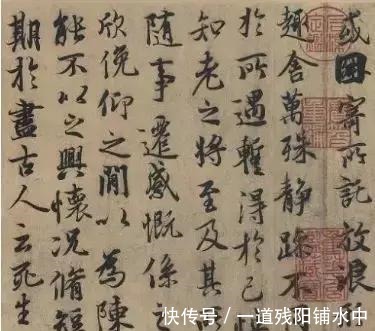 或因寄所託放浪
趣舍萬殊静躁不
於所遇蹔得於己
知老之將至及其所
隨事遷感慨係之
欣俛仰之閒以為陳
能不以之興懷況脩短
期於盡古人云死生
快传号/一道残阳铺水中